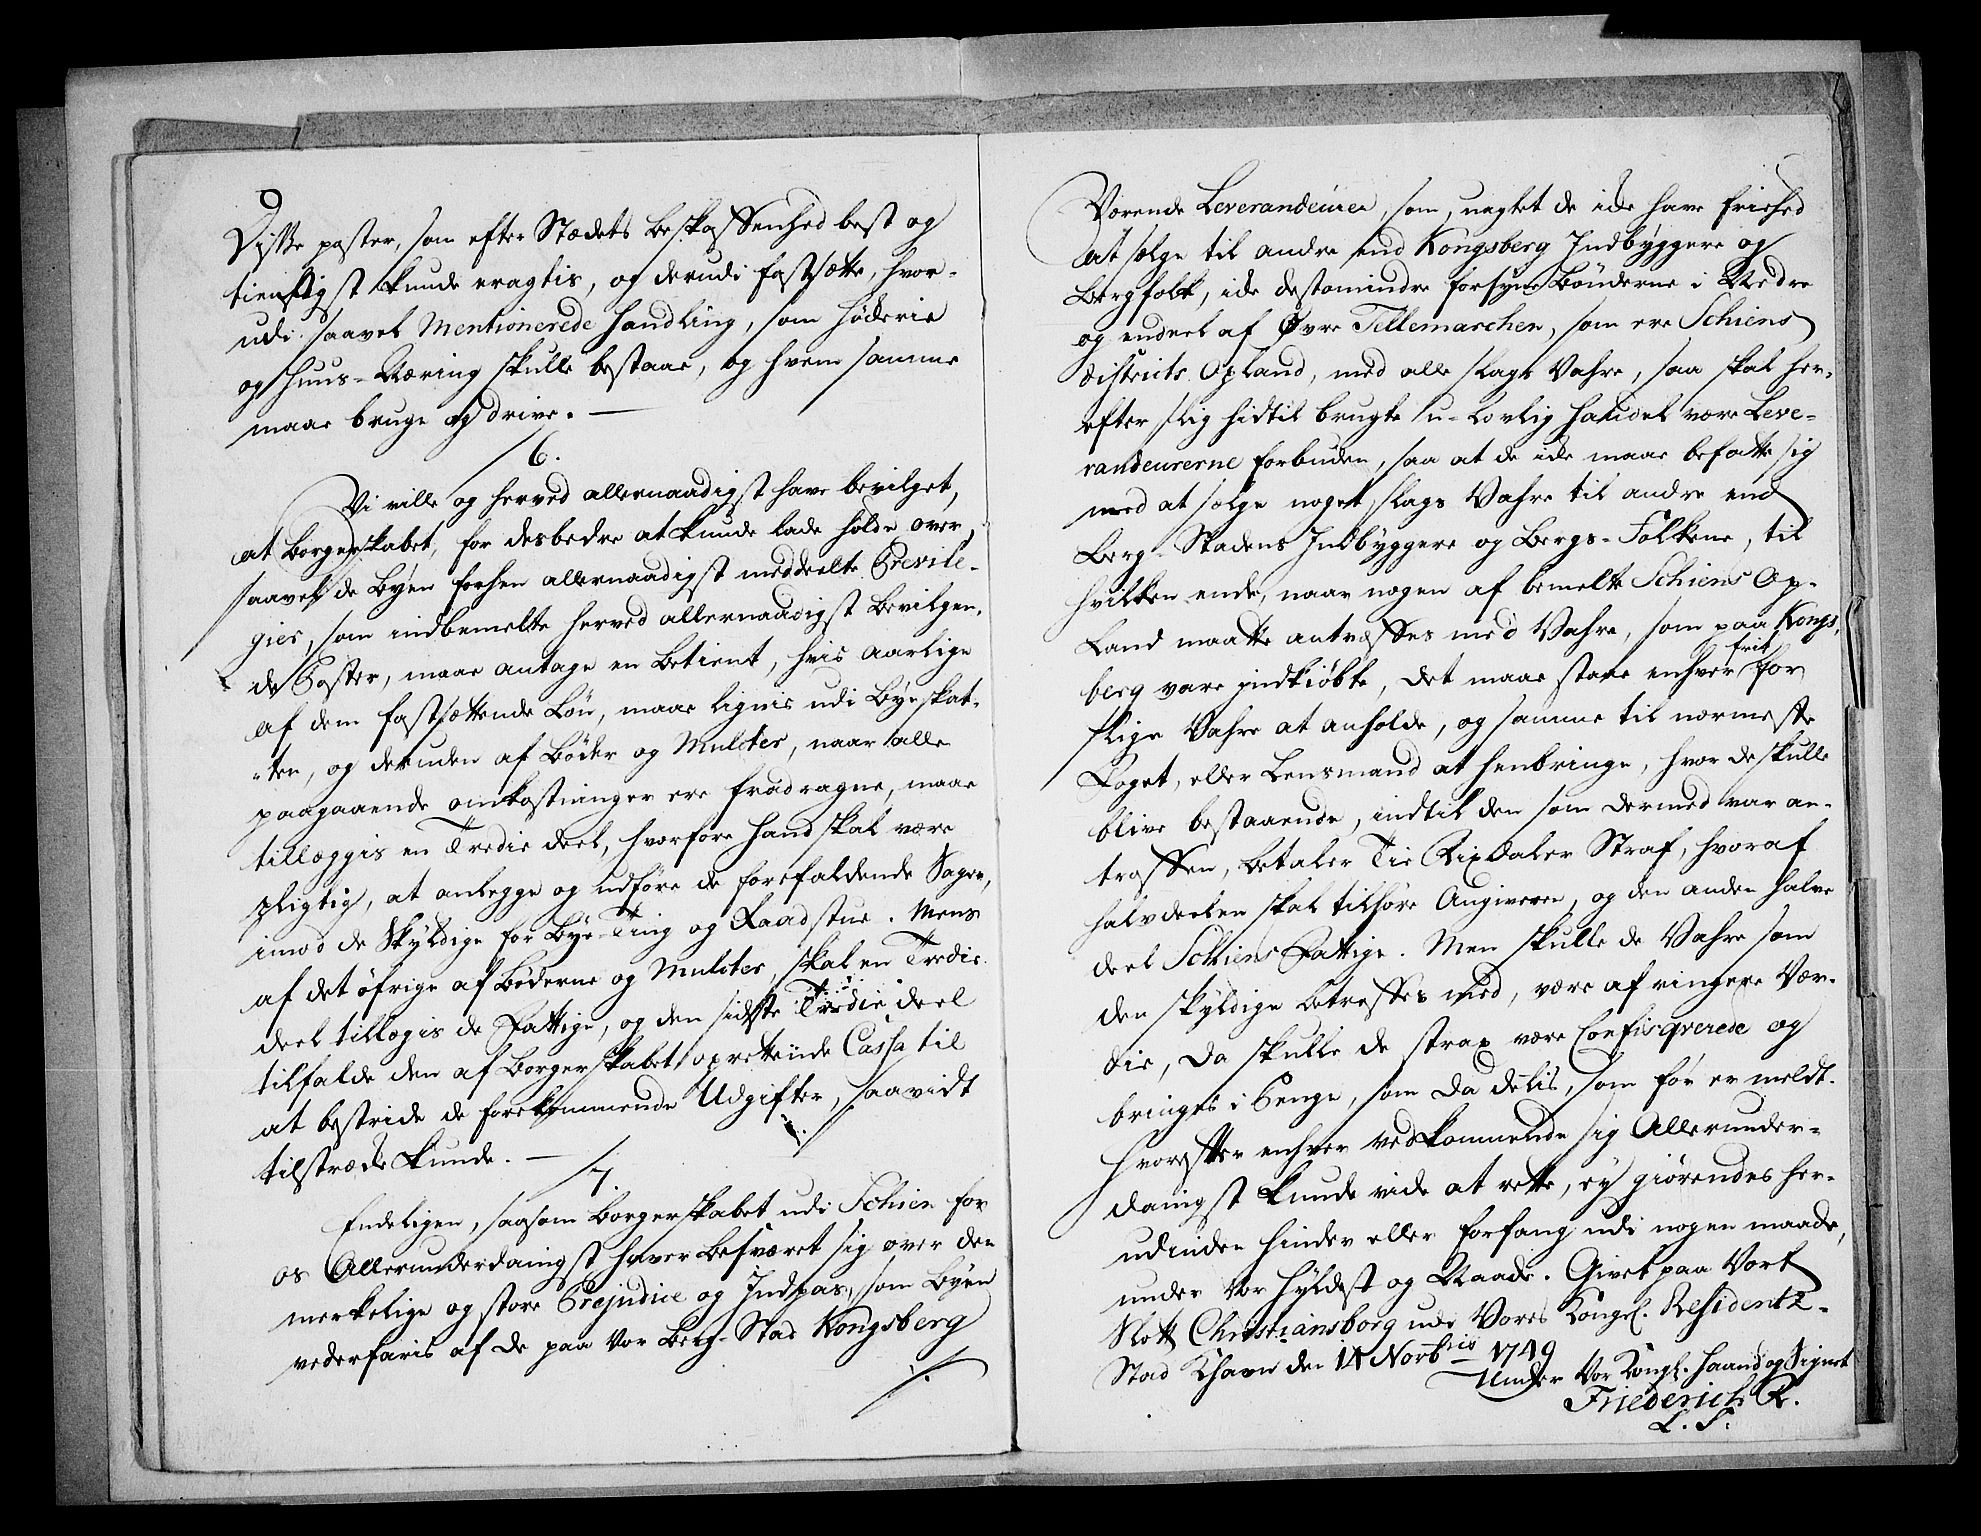 Disse poster, som efter Stædets beskaffenhed best og
tienligst kunde eragtis, og derudi fastsætte, hvor-
udi saavel Mentionerede Handling, som Høckerie
og Huus-Næring skulle bestaae, og hvem samme
maae bruge og drive. —
6.
Vi ville og herved allernaadigst have bevilget,
at Borgerskabet, for desbedre at kunde lade holde over,
saavel de Byen forhen allernaadigst meddeelte Previle-
gier, som indbemelte herved allernaadigst bevilgen-
de Poster, maae antage en Betient, hvis aarlige
af dem fastsættende Løn, maae lignis udi Byeskat-
ten, og desuden af Bøder og Mulcter, naar alle
paagaaende omkostninger ere fradragne, maae
tillæggis en Tredie deel, hvorfore hand skal være
pligtig, at anlegge og udføre de forefaldende Sager,
imod de Skyldige for Bye-Ting og Raadstue. Mens
af det øfrige af Bøderne og Mulcter, skal en Tredie
deel tillægis de Fattige, og den sidste Tredie deel
tilfalde den af Borgerskabet oprettende Cassa til
at bestride de forekommende Udgifter, saavidt
tilstræcke kunde. —
7.
Endeligen, saasom Borgerskabet udi Schien for
os Allerunderdanigst haver besværet sig over den
merkelige og store Prejudice og Indpas, som Byen
vederfaris af de paa Vor Berg-Stad Kongsberg
Værende Leverandeurer, som, uagtet de icke have frihed
at sælge til andre end Kongsberg Indbyggere og
Bergfolk, icke destomindre forsyne Bønderne i Nedre
og endeel af Øvre Tellemarchen, som ere Schiens
Districts Opland, med alle slags Vahre, saa skal her-
efter slig hidtil brugte u-lovlig Handel være Leve-
randeurerne forbuden, saa at de icke maae befatte sig
med at sælge noget slags Vahre til andre end
Berg-Stadens Indbyggere og Bergs-Folkene, til
hvilken ende, naar nogen af bemelte Schiens Op-
Land maatte antræffes med Vahre, som paa Kongs-
berg vare indkiøbte, det maae staae enhver frit for
slige Vahre at anholde, og samme til nærmeste
Foget, eller Lensmand at henbringe, hvor de skulle
blive bestaaende, indtil den som dermed var an-
traffen, betaler Tie Rixdaler Straf, hvoraf
halvdeelen skal tilhøre Angiveren, og den anden halve
deel Schiens Fattige. Men skulle de Vahre som
den skyldige betreffes med, være af ringere Vær-
die, da skulle de strax være Confisqverede og
bringes i Penge, som da delis, som før er meldt.
Hvorefter enhver vedkommende sig Allerunder-
danigst kunde vide at rette, ey giørendes her-
udinden hinder eller forfang udi nogen maade,
under Vor Hyldest og Naade. Givet paa Vort
Slott Christiansborg udi Vores Kongl. Residentz-
Stad Khavn den 14 Novbris 1749
Under Vor Kongl. Haand og Signet
Friederich R.
L. S.